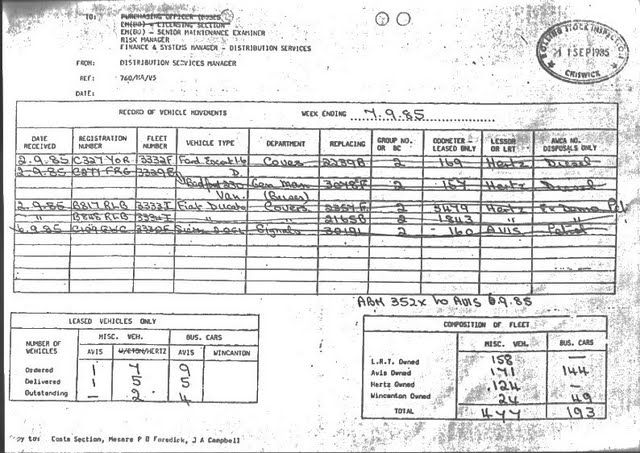 TO: PURCHASING OFFICER (BUSES)
EM(BU) - LICENSING SECTION
EM(BU) - SENIOR MAINTENANCE EXAMINER
RISK MANAGER
FINANCE & SYSTEMS MANAGER - DISTRIBUTION SERVICES
FROM: DISTRIBUTION SERVICES MANAGER
REF: 760/MA/VS
DATE:
ROLLING STOCK INSPECTOR
11 SEP 1985
CHISWICK
RECORD OF VEHICLE MOVEMENTS WEEK ENDING 7.9.85
DATE RECEIVED REGISTRATION NUMBER FLEET NUMBER VEHICLE TYPE DEPARTMENT REPLACING GROUP NO. OR BC ODOMETER - LEASED ONLY LESSOR OR LRT AWER NO. DISPOSALS ONLY
2.9.85 C327 YOR 3332F Ford Escort Coves 2 169 Hertz Diesel
2.9.85 FRG D.
Bedford Gen Man 2 157 Hertz Diesel
Van. (Buses)
2.9.85 B817 RLB 3333I Fiat Ducato Covers 2 5479 Hertz Ex Demo Pet
" B848 RLB 3334I " " 2165B 2 1843 " "
6.9.85 Signals 30191 2 160 AVIS Petrol
ABM 352X to AVIS 6.9.85
LEASED VEHICLES ONLY
NUMBER OF VEHICLES MISC. VEH. BUS. CARS
AVIS HERTZ AVIS WINCANTON
Ordered 1 7 9
Delivered 1 5 5
Outstanding — 2 4
COMPOSITION OF FLEET
MISC. VEH. BUS. CARS
L.R.T. Owned 158 —
Avis Owned 171 144
Hertz Owned 124 —
Wincanton Owned 24 49
TOTAL 477 193
Copy to: Costs Section, Messrs P D Faredick, J A Campbell